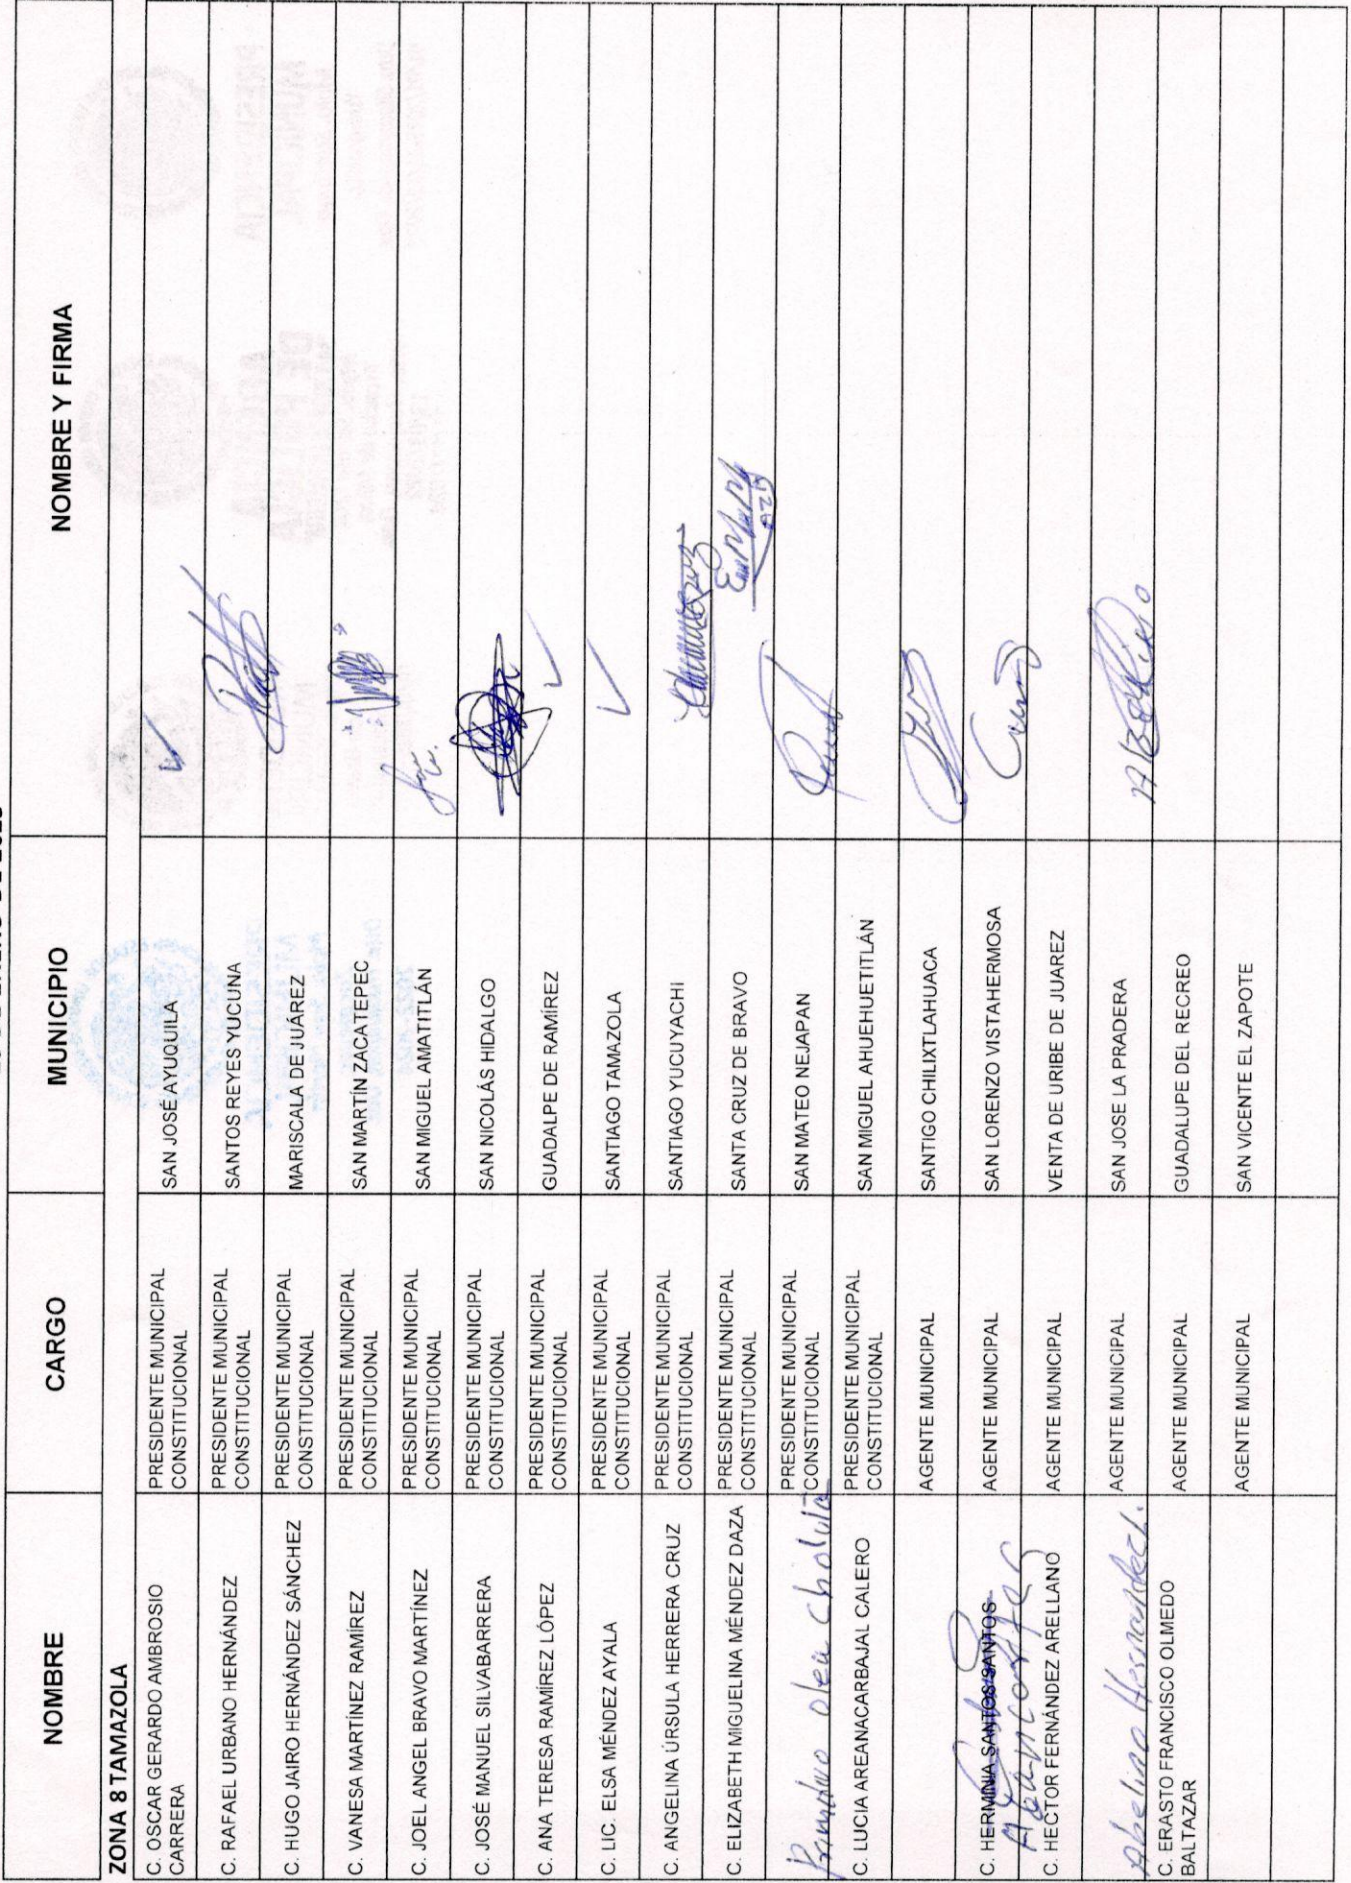 NOMBRE CARGO MUNICIPIO NOMBRE Y FIRMA
ZONA 8 TAMAZOLA
C. OSCAR GERARDO AMBROSIO CARRERA PRESIDENTE MUNICIPAL CONSTITUCIONAL SAN JOSÉ AYUQUILA
C. RAFAEL URBANO HERNÁNDEZ PRESIDENTE MUNICIPAL CONSTITUCIONAL SANTOS REYES YUCUNA
C. HUGO JAIRO HERNÁNDEZ SÁNCHEZ PRESIDENTE MUNICIPAL CONSTITUCIONAL MARISCALA DE JUÁREZ
C. VANESA MARTÍNEZ RAMÍREZ PRESIDENTE MUNICIPAL CONSTITUCIONAL SAN MARTÍN ZACATEPEC
C. JOEL ANGEL BRAVO MARTÍNEZ PRESIDENTE MUNICIPAL CONSTITUCIONAL SAN MIGUEL AMATITLÁN
C. JOSÉ MANUEL SILVABARRERA PRESIDENTE MUNICIPAL CONSTITUCIONAL SAN NICOLÁS HIDALGO
C. ANA TERESA RAMÍREZ LÓPEZ PRESIDENTE MUNICIPAL CONSTITUCIONAL GUADALPE DE RAMÍREZ
C. LIC. ELSA MÉNDEZ AYALA PRESIDENTE MUNICIPAL CONSTITUCIONAL SANTIAGO TAMAZOLA
C. ANGELINA ÚRSULA HERRERA CRUZ PRESIDENTE MUNICIPAL CONSTITUCIONAL SANTIAGO YUCUYACHI
C. ELIZABETH MIGUELINA MÉNDEZ DAZA PRESIDENTE MUNICIPAL CONSTITUCIONAL SANTA CRUZ DE BRAVO
Primitivo olea cholula PRESIDENTE MUNICIPAL CONSTITUCIONAL SAN MATEO NEJAPAN
C. LUCIA AREANACARBAJAL CALERO PRESIDENTE MUNICIPAL CONSTITUCIONAL SAN MIGUEL AHUEHUETITLÁN
AGENTE MUNICIPAL SANTIGO CHILIXTLAHUACA
C. HERMINIA SANTOS SANTOS AGENTE MUNICIPAL SAN LORENZO VISTAHERMOSA
C. HECTOR FERNÁNDEZ ARELLANO AGENTE MUNICIPAL VENTA DE URIBE DE JUAREZ
Abelino Hernandez. AGENTE MUNICIPAL SAN JOSE LA PRADERA
C. ERASTO FRANCISCO OLMEDO BALTAZAR AGENTE MUNICIPAL GUADALUPE DEL RECREO
AGENTE MUNICIPAL SAN VICENTE EL ZAPOTE